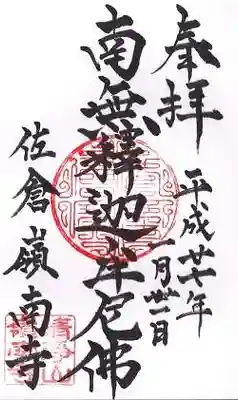 奉拝
平成廿十年
一月廿一日
南無釋迦牟尼佛
佐倉嶺南寺